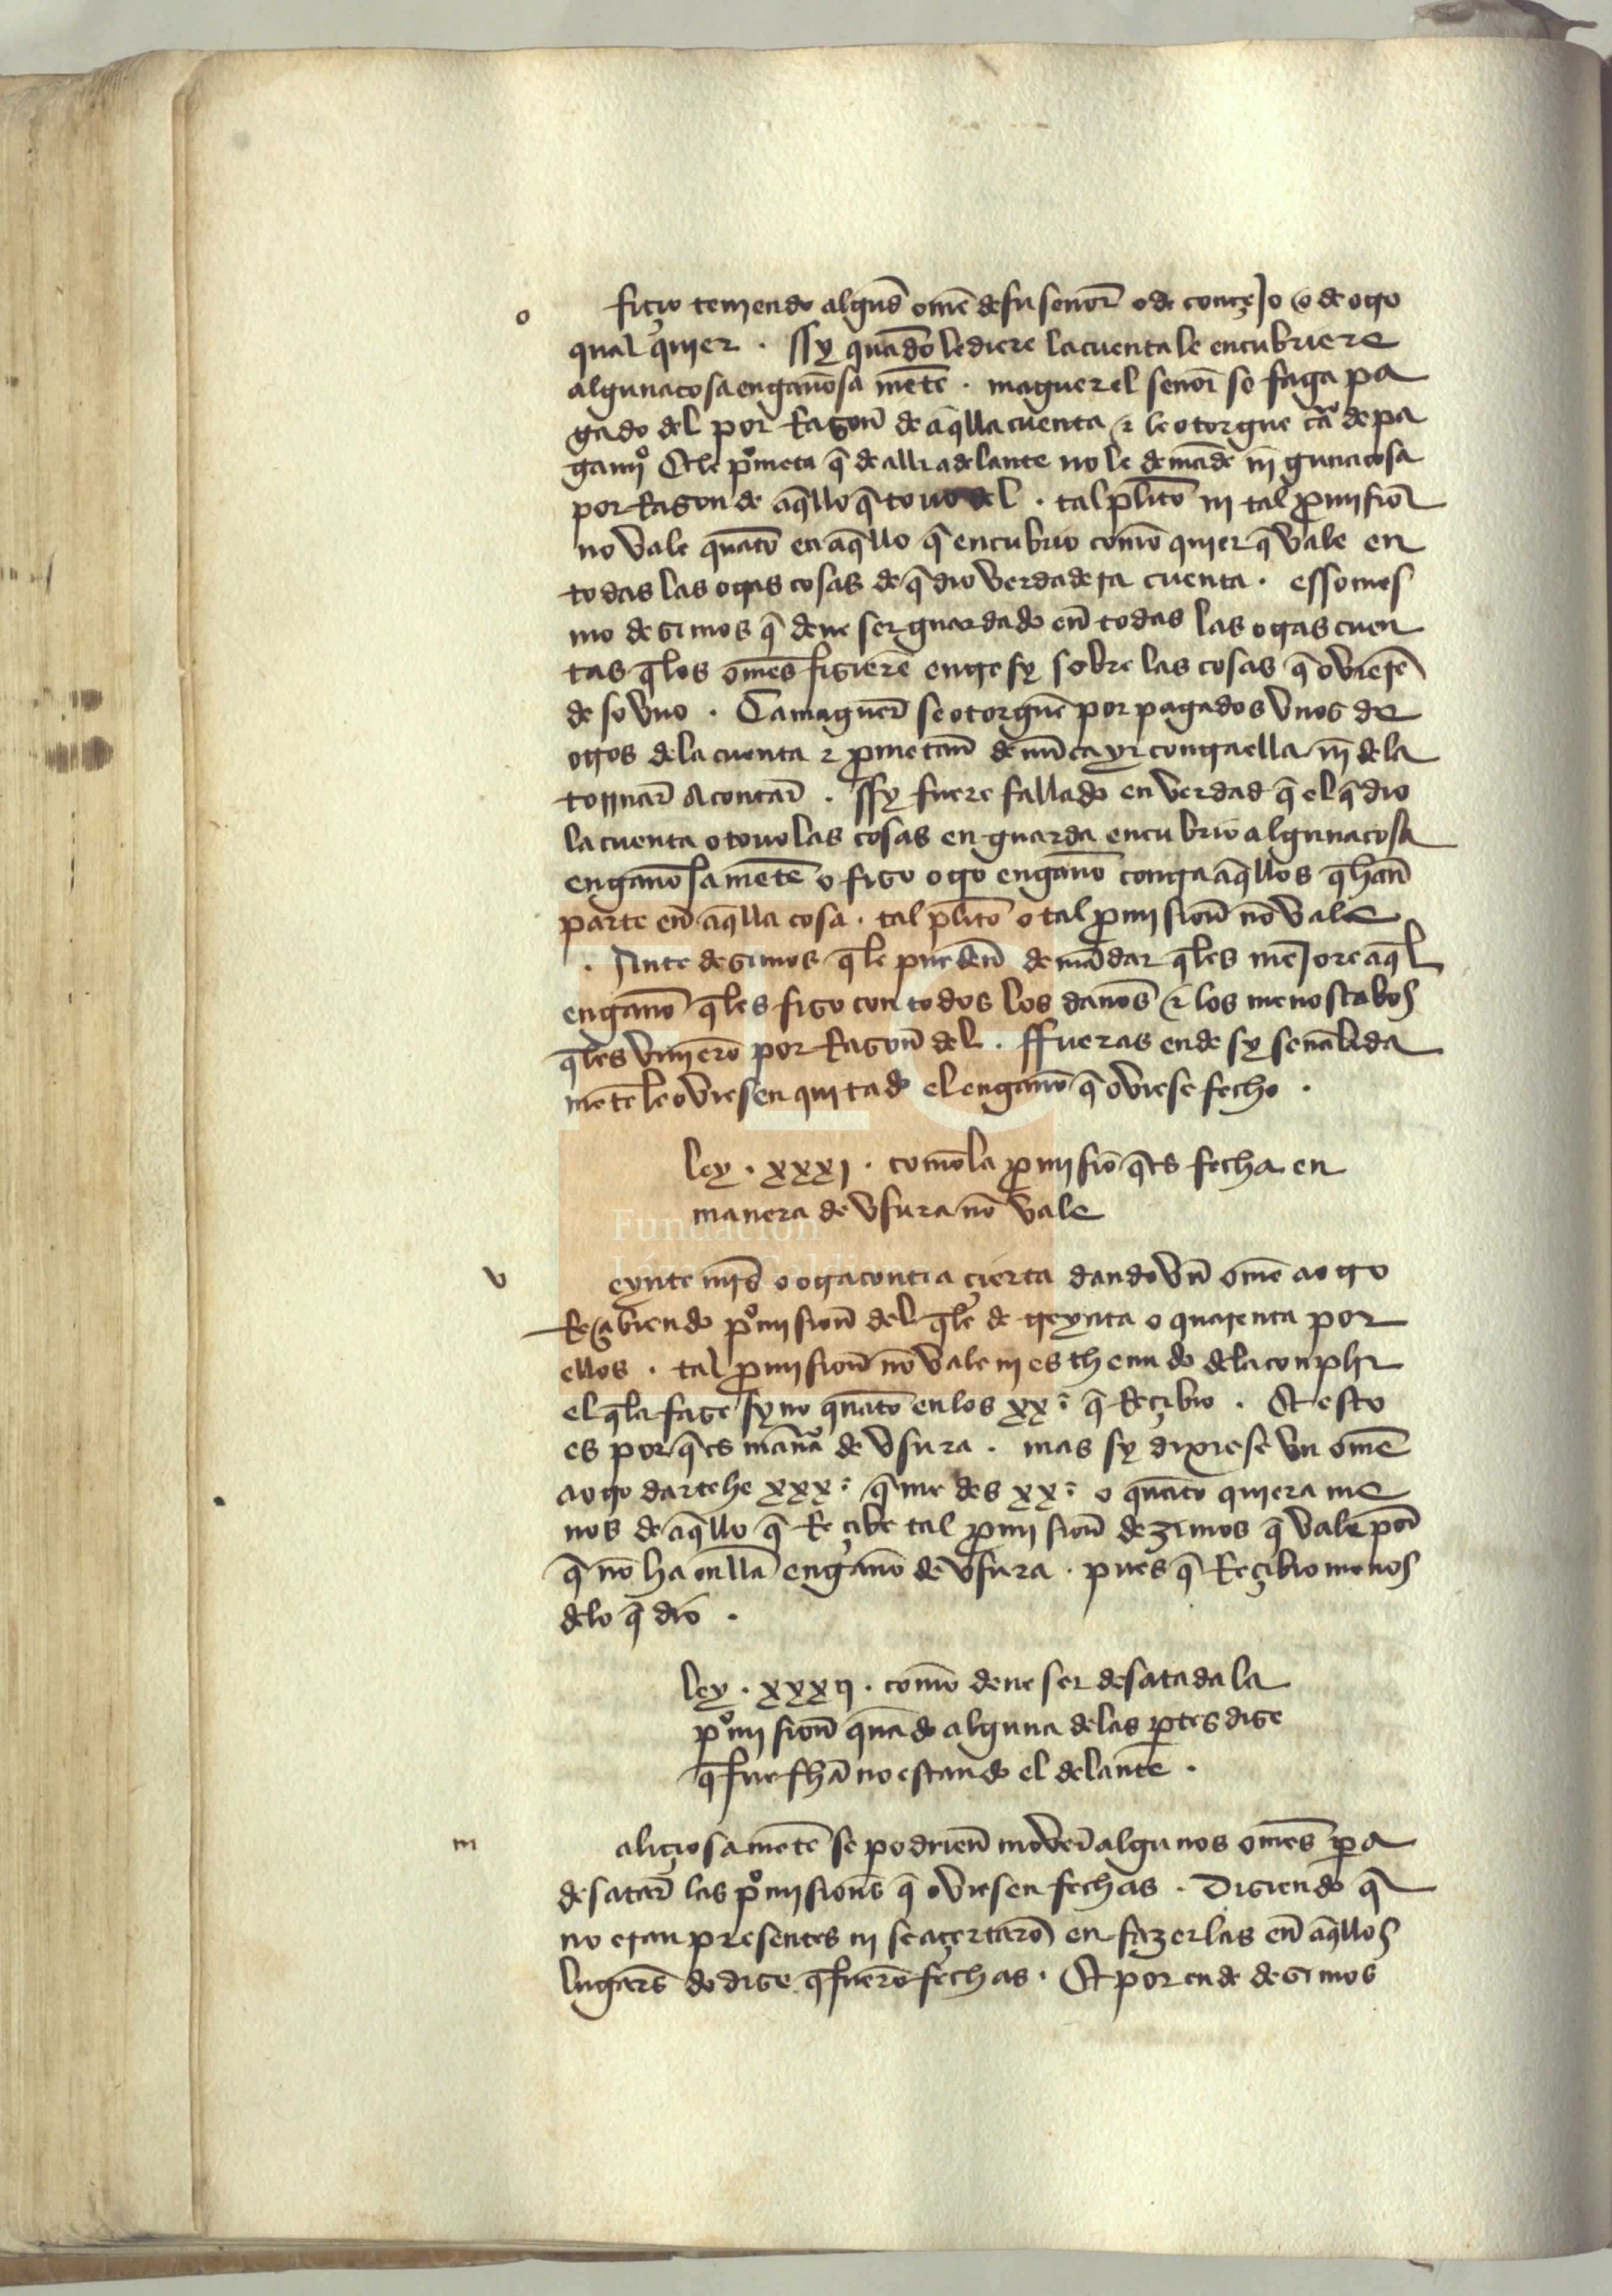 o fiçio teniendo algũd ome͂ de su señor o de conçejo o de ot̃o
qual quier . Ssy qua͂do le diere la cuenta le encubriere
alguna cosa engan̄osa me͂te . maguer el sen̄or se faga pa
gado del por Rason̄ de aq̄lla cuenta ⁊ le otorgue ca͂ de pa
gamj᷑o Et le p᷑ometa q̄ de alli adelante no le dema͂de nj̄ guna cosa
por Rason de aq̄llo q̄ touo del . tal pl̄ito nj tal ꝓmisio͂
no vale qua͂to en aq̄llo q̄ encubrio com̄o quier q̄ vale en
todas las ot̃as cosas de q̄ dio verdadera cuenta . esso mes
mo desimos q̄ deue ser guardado en̄ todas las ot̃as cuen
tas q̄ los om̄es fisiere͂ ent̃e sy sobre las cosas q̄ ouiere͂
de so vno . Ca maguer̄ se otorgue͂ por pagados vnos de
ot̃os de la cuenta ⁊ ꝓmetan̄ de nu͂ca yr cont̃a ella nj̄ de la
tornar̄ a contar̄ . Ssy fuere fallado en verdad q̄ el q̄ dio
la cuenta o touo las cosas en guarda encubrio alguna cosa
engan̄osa me͂te o fiso ot̃o engan̄o cont̃a aq̄llos q̄ han̄
parte en̄ aq̄lla cosa . tal pl̄ito o tal ꝓmision̄ no͂ vale
. Ante desimos q̄ le pueden̄ dema͂dar q̄ les me͂jore aq̄l
engan̄o q̄ les fiso con todos los dan̄os ⁊ los menoscabos
q̄ les vinjero͂ por Rason̄ del . Ffueras ende sy sen̄alada
me͂te le ouiesen quitado el engan̄o q̄ ouiese fecho .
ley . xxxj . com̄o la ꝓmisio͂ q̄ es fecha en
manera de vsura no͂ vale
v eynte mr̄s o ot̃a contia çierta dando vn̄ ome͂ a ot̃o
Resçibiendo p᷑omision̄ del q̄ le de t̃eynta o quarenta por
ellos . tal ꝓmision̄ no͂ vale nj es thenudo de la conplir
el q̄ la fase sy no qua͂to en los xx : q̄ Reçibio . Et esto
es por q̄ es man̄a de vsura . mas sy dixiese vn ome͂
a ot̃o darte he xxx : q̄ me des xx : o qua͂to quiera me
nos de aq̄llo q̄ Reçibe tal ꝓmision̄ dezimos q̄ vale por
q̄ no͂ ha en lla engan̄o de vsura . pues q̄ Reçibio menos
de lo q̄ dio .
ley . xxxij . com̄o deue ser desatada la
p᷑omision̄ qua͂do alguna de las ꝑtes dise
q̄ fue fha͂ no estando el delante .
m aliçiosa me͂te se podrien̄ mouer̄ algunos om̄es ꝑa
desatar̄ las p᷑omision̄s q̄ ouiesen fechas . Disiendo q̄
no eran presentes nj se açertaro͂ en fazerlas en̄ aq̄llos
lugar̄s do dise q̄ fuero͂ fechas . Et por ende desimos
Fundación
Lázaro Galdiano